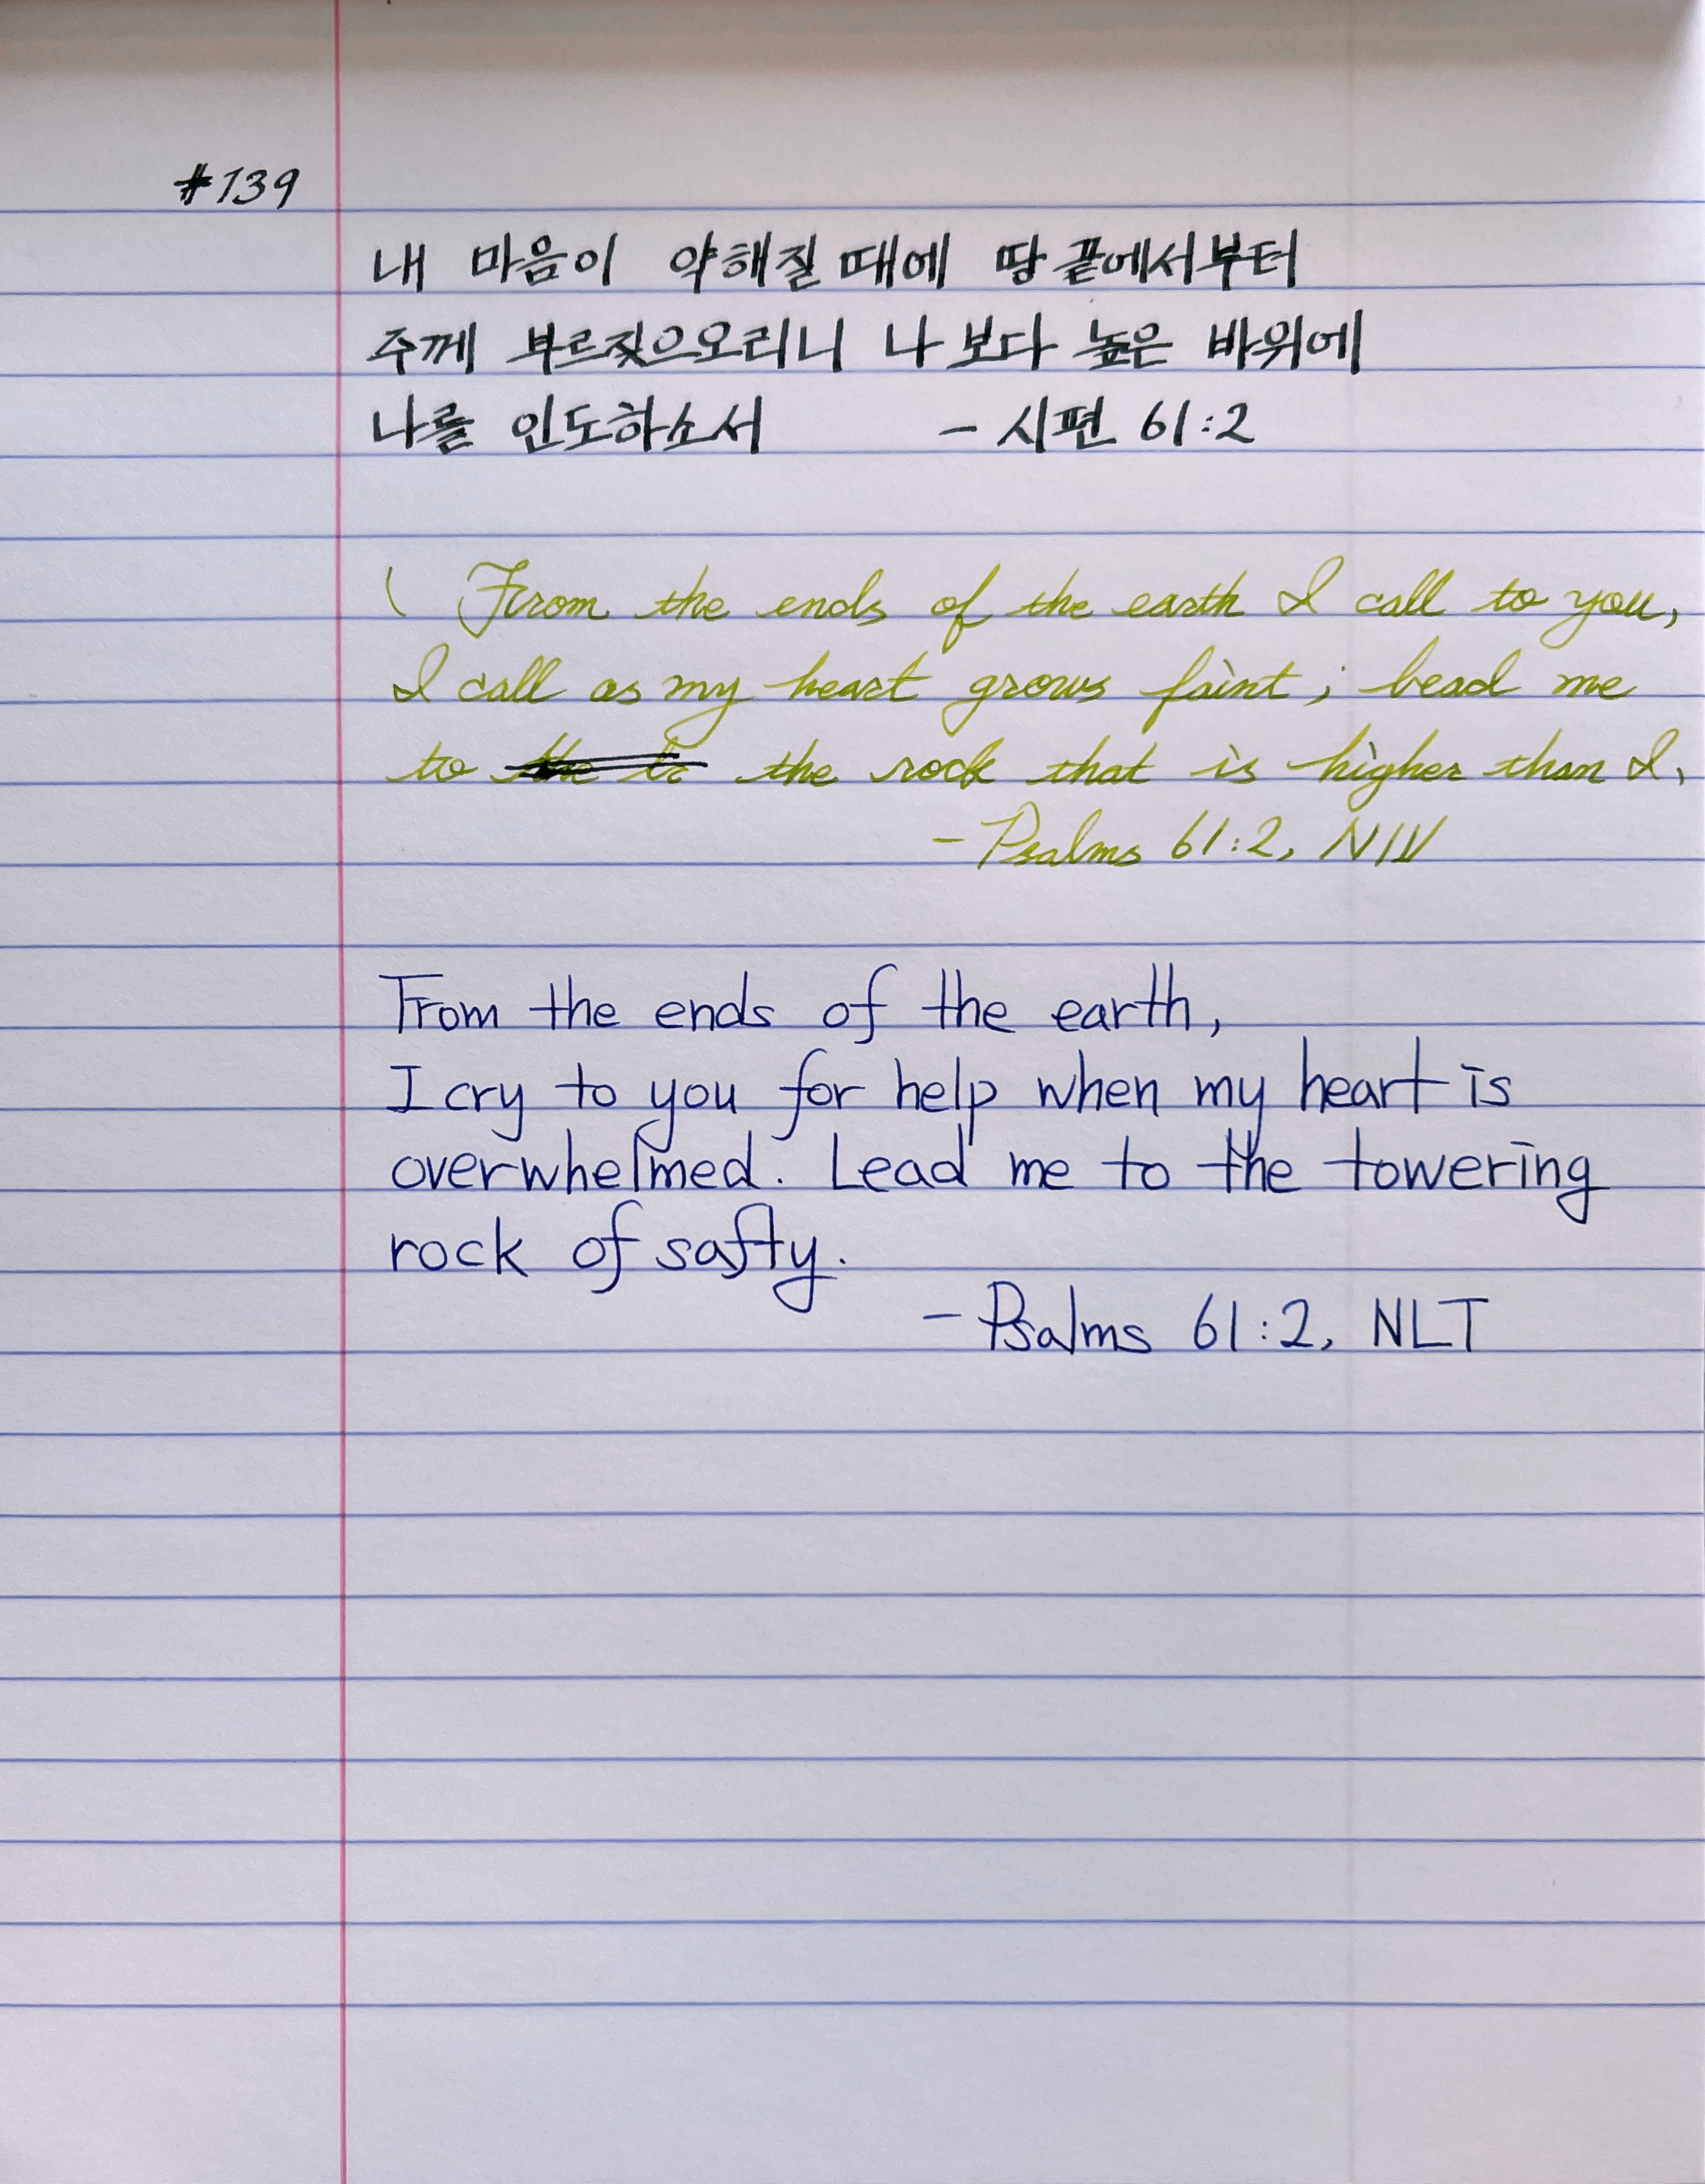 #139
내 마음이 약해질 때에 땅 끝에서부터
주께 부르짖으오리니 나 보다 높은 바위에
나를 인도하소서 - 시편 61:2
From the ends of the earth I call to you,
I call as my heart grows faint; lead me
to the rock that is higher than I.
- Psalms 61:2, NIV
From the ends of the earth,
I cry to you for help when my heart is
overwhelmed. Lead me to the towering
rock of safty.
- Psalms 61:2, NLT